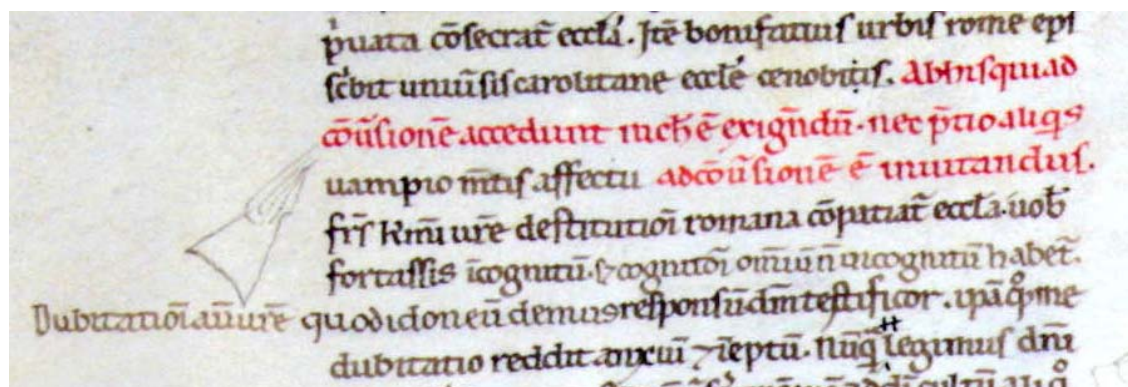 p̓uata cōsecrat̄ eccła̓. Itē bonifatius urbis rome epi
sc̓bit uniūsis carolitane eccłe cenobitis. Ab his qui ad
cōūsionē accedunt nich̄ ē exign̄dū. nec p̄tio aliq̓s
uampio m̄tis affectu ad cōūsionē ē inuitandus.
fr̄s kmī ur̄e destitutiōi romana cōpatiat̄ eccła. uob̄
fortassis īcognitū. ⁊ cognitōi om̄iū n̄ īcognitū habet̄.
Dubitatiōi aū ur̄e quod idoneū demus responsū dm̄ testificor. ipā q̊ me
dubitatio reddit anxiū ⁊ īeptū. Nūq̄ legimus dn̄i